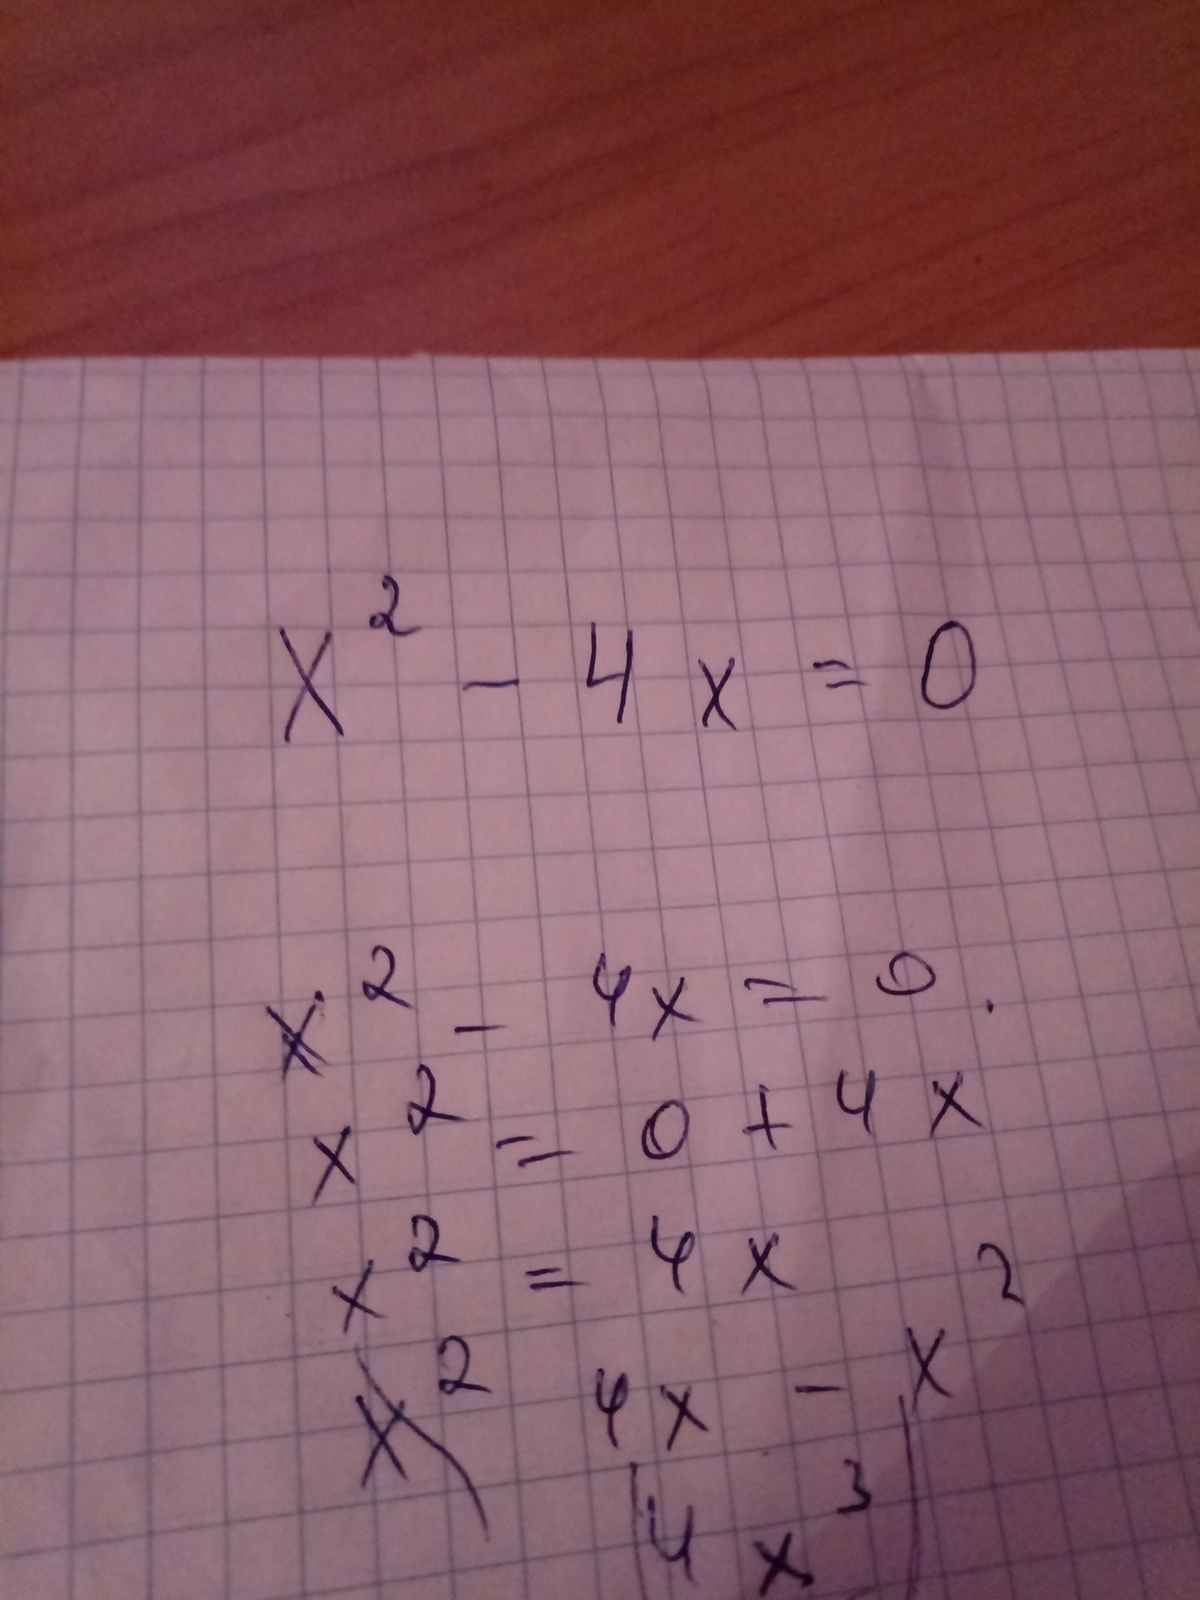 x² - 4x = 0
x² - 4x = 0.
x² = 0 + 4x
x² = 4x
x² 4x - x²
4x³